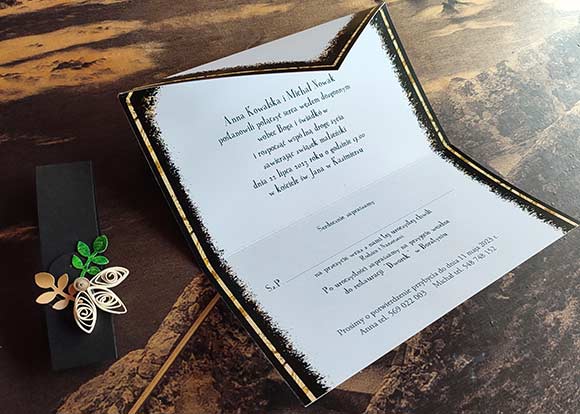 Anna Kowalska i Michał Nowak
postanowili połączyć serca węzłem dozgonnym
wobec Boga i świadków
i rozpocząć wspólną drogę życia
zawierając związek małżeński
dnia 22 lipca 2023 roku o godzinie 17.00
w kościele św. Jana w Kazimierzu
Serdecznie zapraszamy
Sz.P
na przeżycie wraz z nami tej uroczystej chwili
Rodzice i Narzeczeni
Po uroczystości zapraszamy na przyjęcie weselne
do restauracji "Dworek" w Bordyniu
Prosimy o potwierdzenie przybycia do dnia 11 maja 2023 r.
Anna tel. 569 022 003 Michał tel. 548 748 152